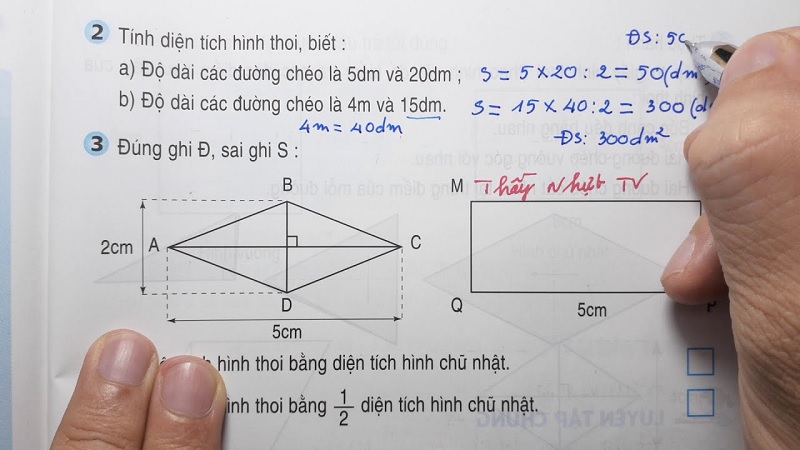 2 Tính diện tích hình thoi, biết :
ĐS: 50
a) Độ dài các đường chéo là 5dm và 20dm ; S = 5 × 20 : 2 = 50 (dm
b) Độ dài các đường chéo là 4m và 15dm. S = 15 × 40 : 2 = 300 (d
4m = 40dm
ĐS: 300dm²
3 Đúng ghi Đ, sai ghi S :
B
M Thầy Nhựt TV
2cm A C
D
Q 5cm
5cm
hình thoi bằng diện tích hình chữ nhật.
hình thoi bằng 1/2 diện tích hình chữ nhật.
LUYỆN TẬP CHUNG